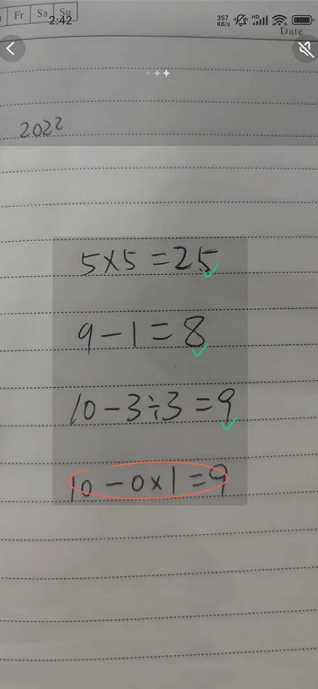 Fr Sa Su
2:42
357 KB/s HD
Date
2022
5×5=25
9-1=8
10-3÷3=9
10-0×1=9